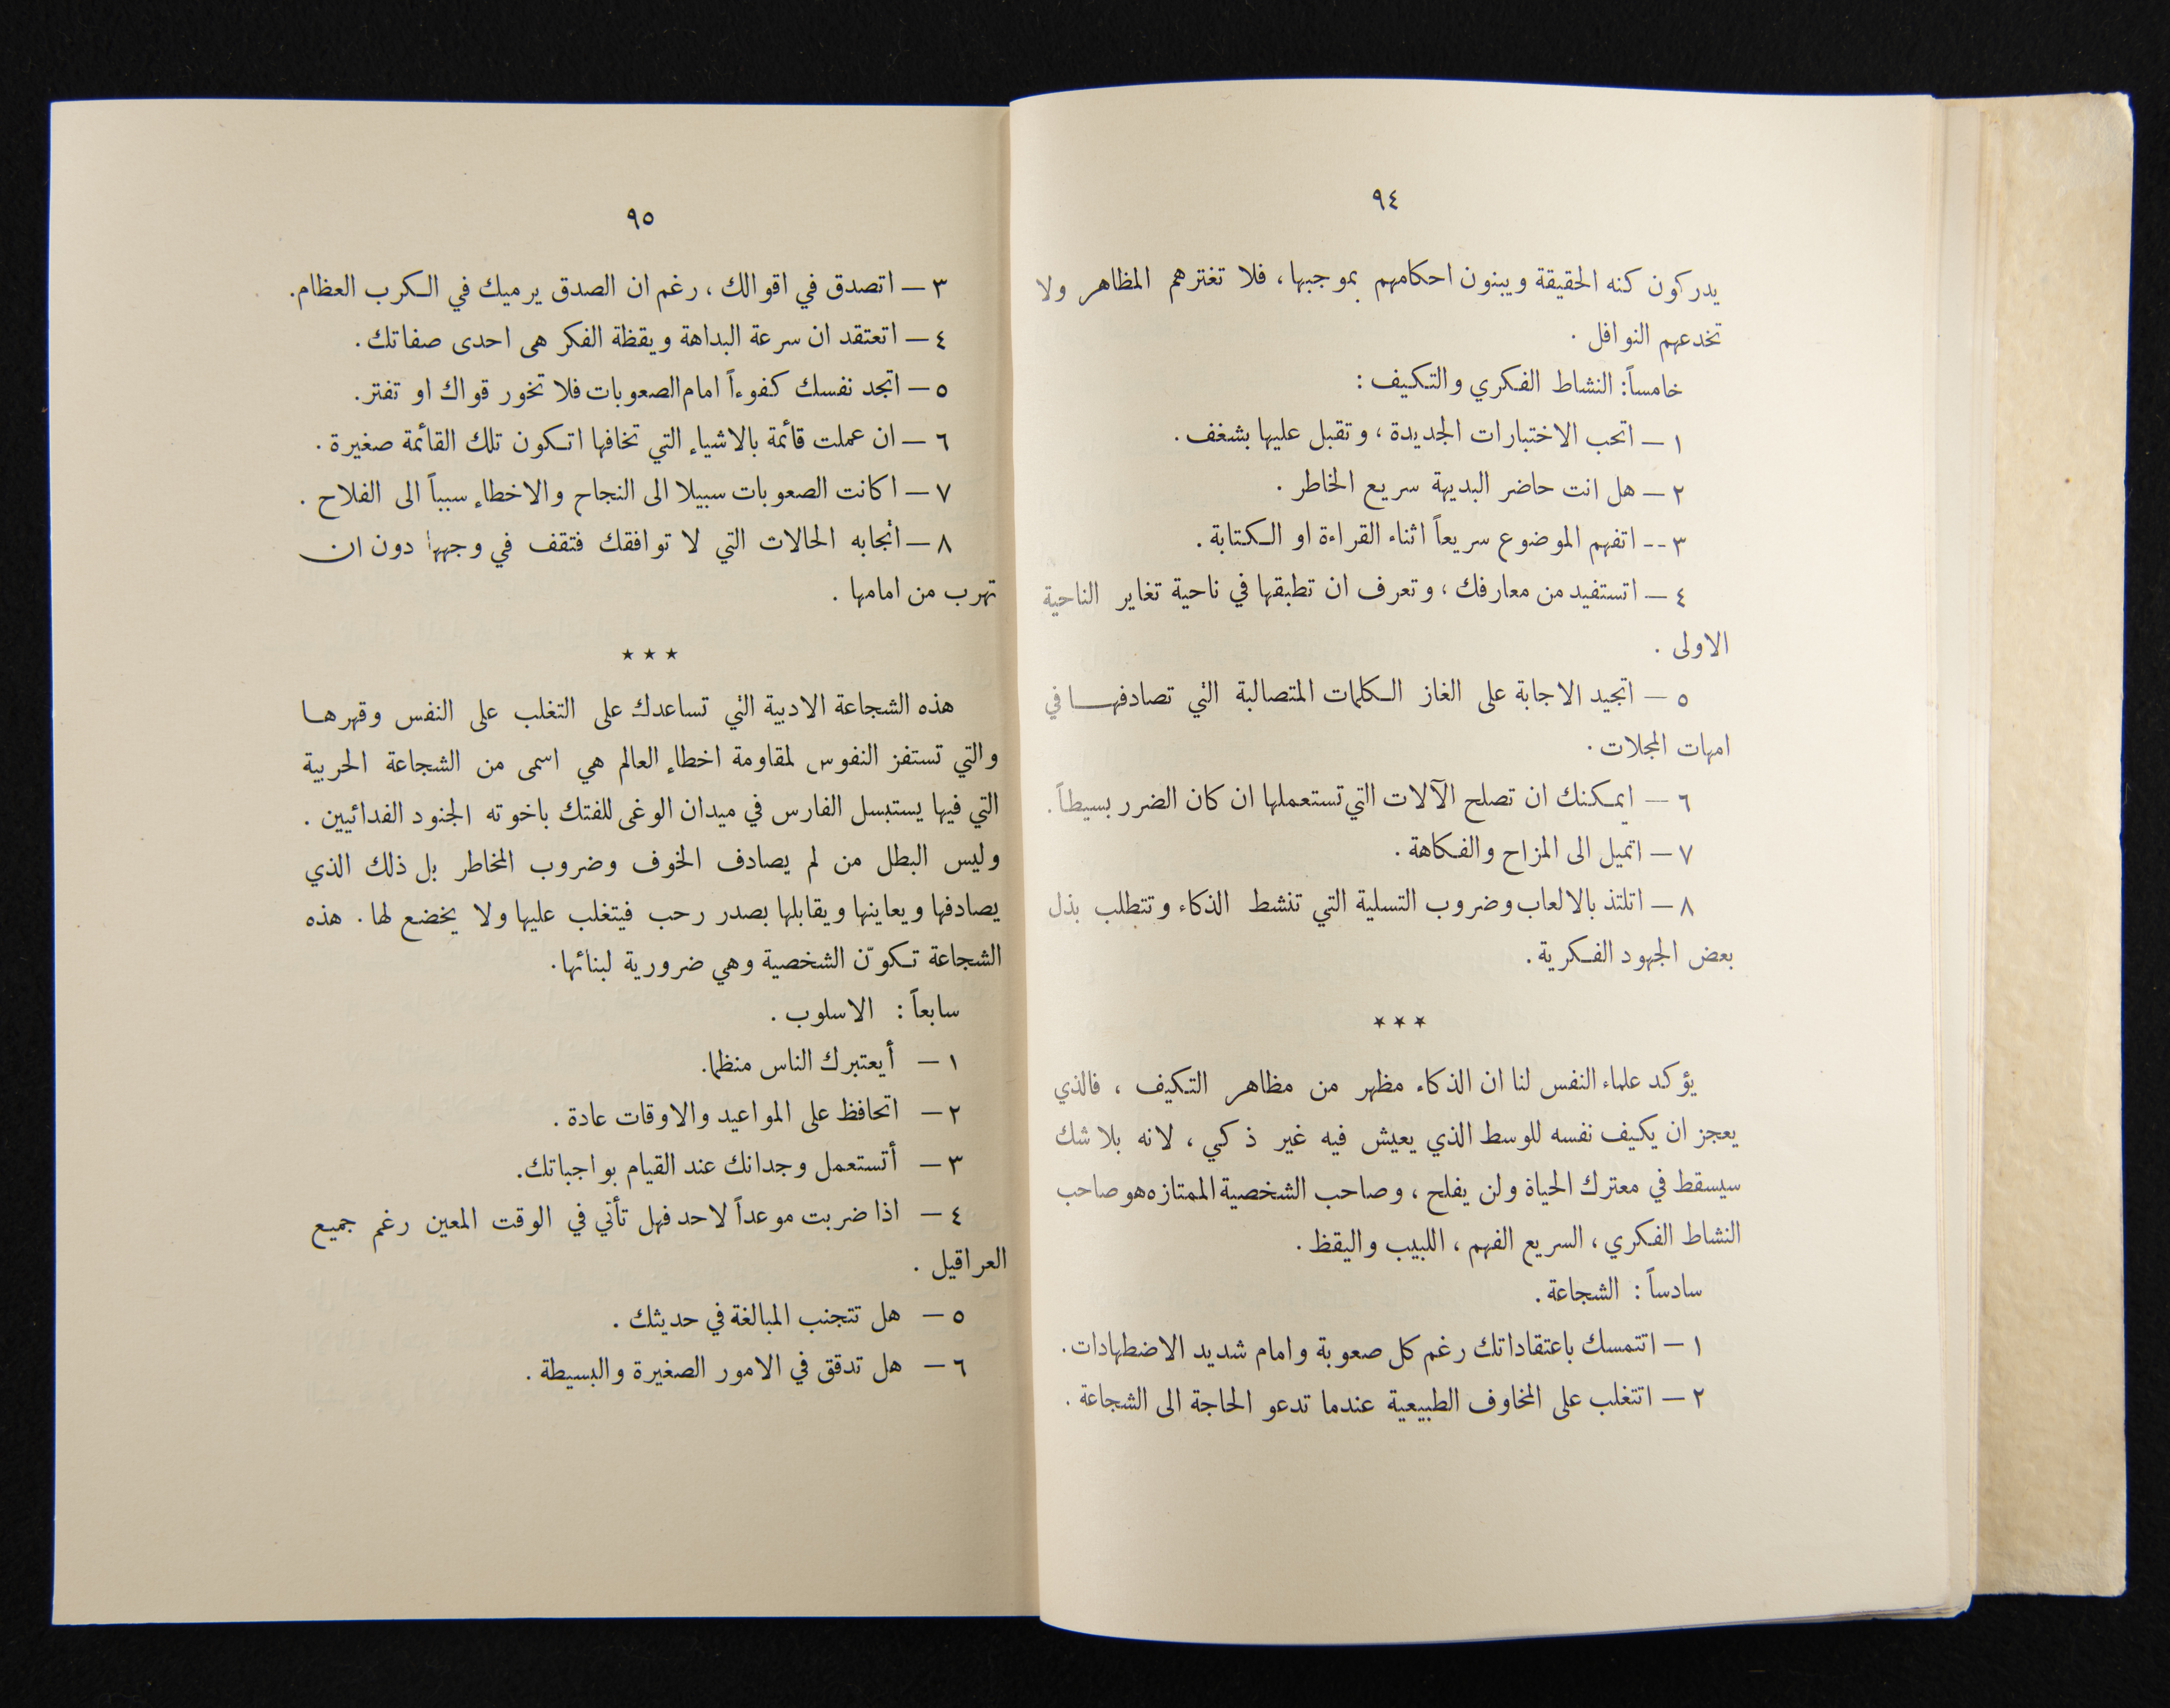 ٩٤
يدركون كنه الحقيقة ويبنون احكامهم بموجبها، فلا تغترهم المظاهر ولا
تخدعهم النوافل .
خامساً: النشاط الفكري والتكيف :
١ — اتحب الاختبارات الجديدة ، وتقبل عليها بشغف .
٢ — هل انت حاضر البديهة سريع الخاطر .
٣ -- اتفهم الموضوع سريعاً اثناء القراءة او الكتابة .
٤ — اتستفيد من معارفك ، وتعرف ان تطبقها في ناحية تغاير الناحية
الاولى .
٥ — اتجيد الاجابة على الغاز الكلمات المتصالبة التي تصادفها في
امهات المجلات .
٦ — ايمكنك ان تصلح الآلات التي تستعملها ان كان الضرر بسيطاً .
٧ — اتميل الى المزاح والفكاهة .
٨ — اتلتذ بالالعاب وضروب التسلية التي تنشط الذكاء وتتطلب بذل
بعض الجهود الفكرية .
★ ★ ★
يؤكد علماء النفس لنا ان الذكاء مظهر من مظاهر التكيف ، فالذي
يعجز ان يكيف نفسه للوسط الذي يعيش فيه غير ذكي ، لانه بلا شك
سيسقط في معترك الحياة ولن يفلح ، وصاحب الشخصية الممتازه هو صاحب
النشاط الفكري ، السريع الفهم ، اللبيب واليقظ .
سادساً : الشجاعة .
١ — اتتمسك باعتقاداتك رغم كل صعوبة وامام شديد الاضطهادات .
٢ — اتتغلب على المخاوف الطبيعية عندما تدعو الحاجة الى الشجاعة .
٩٥
٣ — اتصدق في اقوالك ، رغم ان الصدق يرميك في الكرب العظام.
٤ — اتعتقد ان سرعة البداهة ويقظة الفكر هى احدى صفاتك .
٥ — اتجد نفسك كفوءاً امام الصعوبات فلا تخور قواك او تفتر .
٦ — ان عملت قائمة بالاشياء التي تخافها اتكون تلك القائمة صغيرة .
٧ — اكانت الصعوبات سبيلا الى النجاح والاخطاء سبباً الى الفلاح .
٨ — اتجابه الحالات التي لا توافقك فتقف في وجهها دون ان
تهرب من امامها .
★ ★ ★
هذه الشجاعة الادبية التي تساعدك على التغلب على النفس وقهرها
والتي تستفز النفوس لمقاومة اخطاء العالم هي اسمى من الشجاعة الحربية
التي فيها يستبسل الفارس في ميدان الوغى للفتك باخوته الجنود الفدائيين .
وليس البطل من لم يصادف الخوف وضروب المخاطر بل ذلك الذي
يصادفها ويعاينها ويقابلها بصدر رحب فيتغلب عليها ولا يخضع لها . هذه
الشجاعة تكوّن الشخصية وهي ضرورية لبنائها.
سابعاً : الاسلوب .
١ — أيعتبرك الناس منظما.
٢ — اتحافظ على المواعيد والاوقات عادة .
٣ — أتستعمل وجدانك عند القيام بواجباتك.
٤ — اذا ضربت موعداً لاحد فهل تأتي في الوقت المعين رغم جميع
العراقيل .
٥ — هل تتجنب المبالغة في حديثك .
٦ — هل تدقق في الامور الصغيرة والبسيطة .